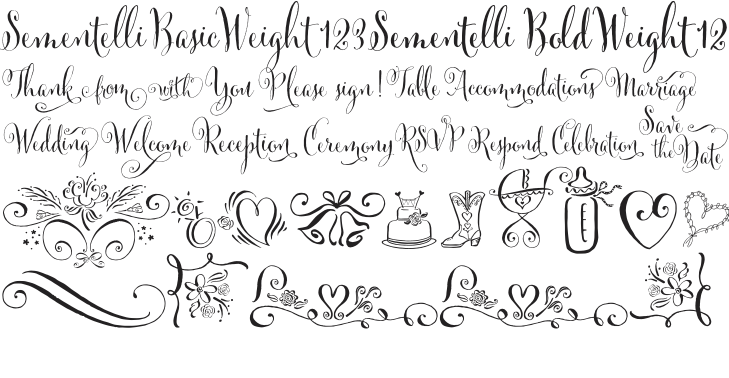 Sementelli Basic Weight 123 Sementelli Bold Weight 12
Thank from with You Please sign! Table Accommodations Marriage
Wedding Welcome Reception Ceremony RSVP Respond Celebration Save the Date